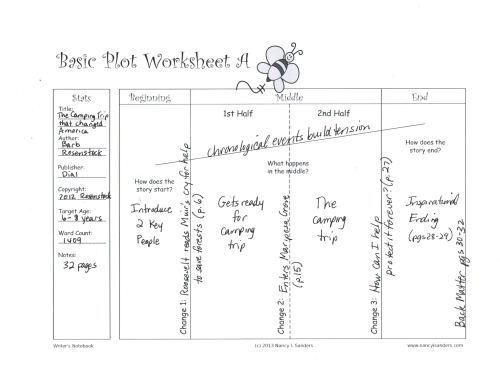 Basic Plot Worksheet A
Stats
Title:
The Camping Trip
that changed
America
Author:
Barb
Rosenstock
Publisher:
Dial
Copyright:
2012 Rosenstock
Target Age:
6-8 years
Word Count:
1409
Notes:
32 pages
Beginning
Middle
End
1st Half
2nd Half
chronological events build tension
How does the
story start?
Introduce
2 Key
People
Change 1: Roosevelt reads Muir's cry for help
to save forests (p. 6)
What happens
in the middle?
Gets ready
for
camping
trip
Change 2: Enters Mariposa Grove
(p.15)
The
camping
trip
Change 3: How can I help
protect it forever? (p. 27)
How does the
story end?
Inspirational
Ending
(pgs 28-29)
Back Matter pgs 30-32
Writer's Notebook
(c) 2013 Nancy I. Sanders
www.nancyisanders.com